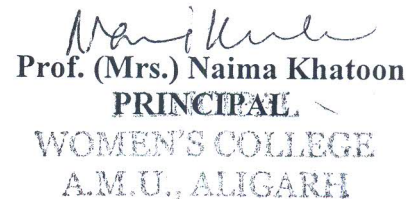 Prof. (Mrs.) Naima Khatoon
PRINCIPAL
WOMEN'S COLLEGE
A.M.U., ALIGARH